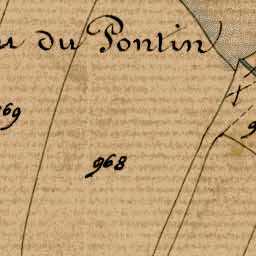 du Pontin
969
968